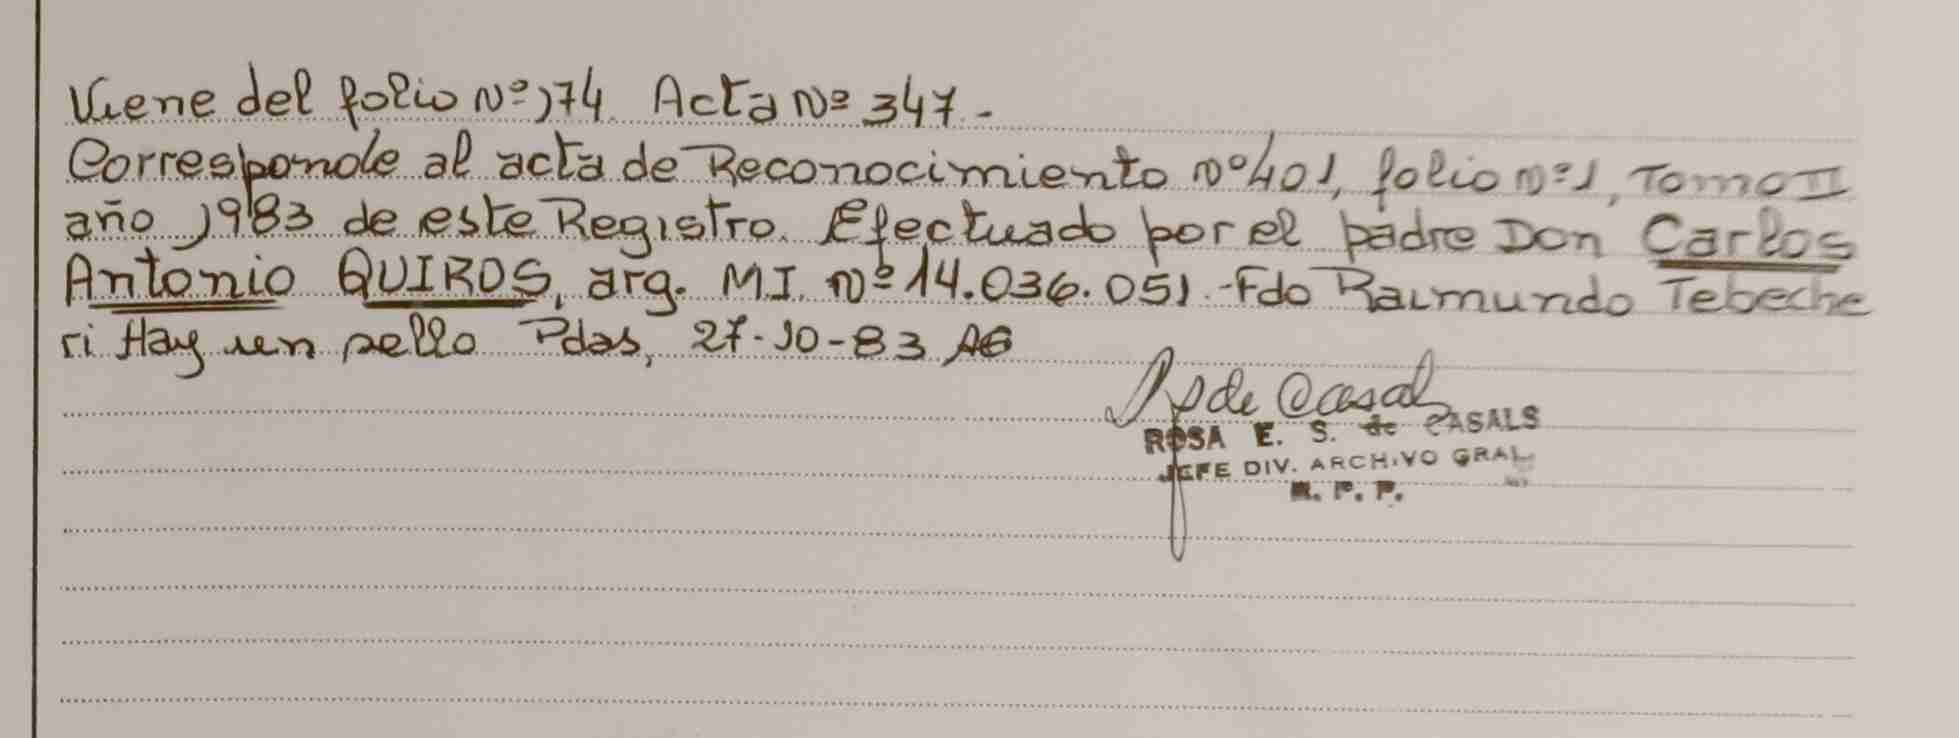 Viene del folio Nº 174 Acta Nº 347.-
Corresponde al acta de Reconocimiento Nº 401, folio Nº 1, Tomo II
año 1983 de este Registro. Efectuado por el padre Don Carlos
Antonio QUIROS, arg. M.I. Nº 14.036.051.-Fdo Raimundo Tebeche
ri Hay un sello Pdas, 27-10-83 AG
de Casals
ROSA E. S. de CASALS
JEFE DIV. ARCHIVO GRAL
R. P. P.